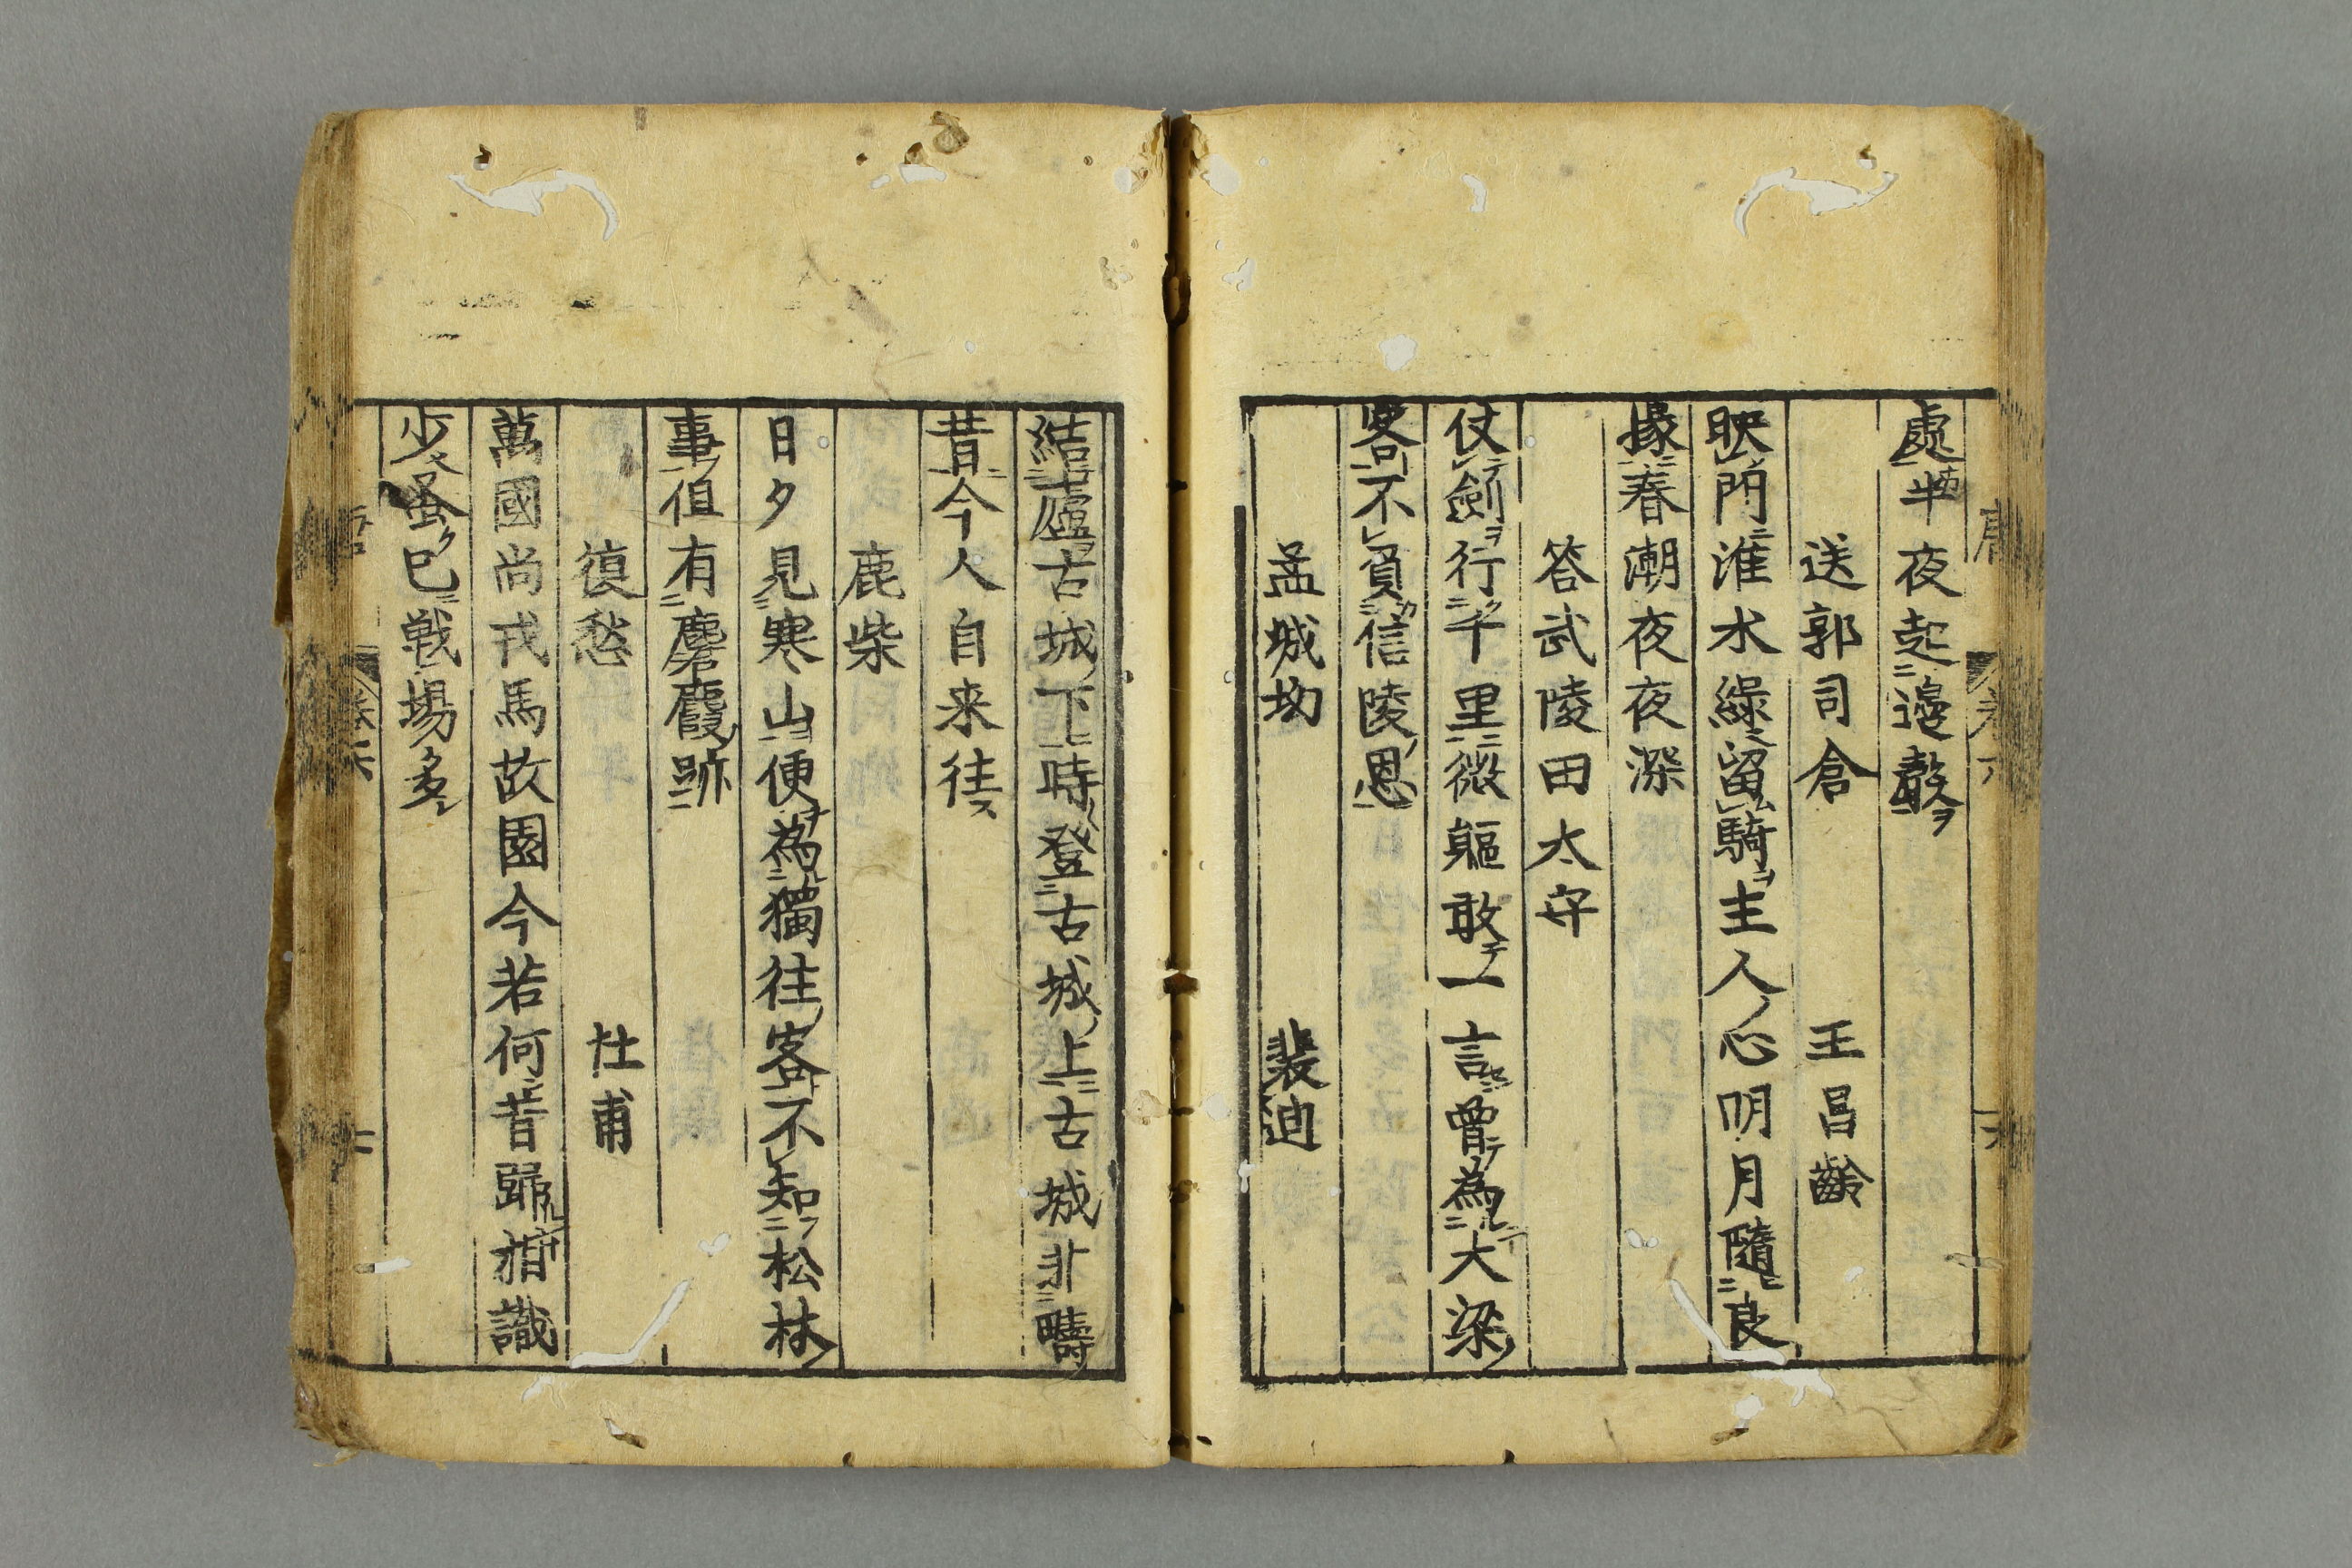 處半夜起邊聲
送郭司倉 王昌齡
映門淮水綠留騎主人心明月隨良
掾春潮夜夜深
答武陵田太守
仗劍行千里微軀敢一言曾為大梁
客不負信陵恩
孟城坳 裴迪
結廬古城下時登古城上古城非疇
昔今人自来往
鹿柴
日夕見寒山便為獨往客不知松林
事但有麏麚跡
復愁 杜甫
萬國尚戎馬故園今若何昔歸相識
少蚤已戦場多